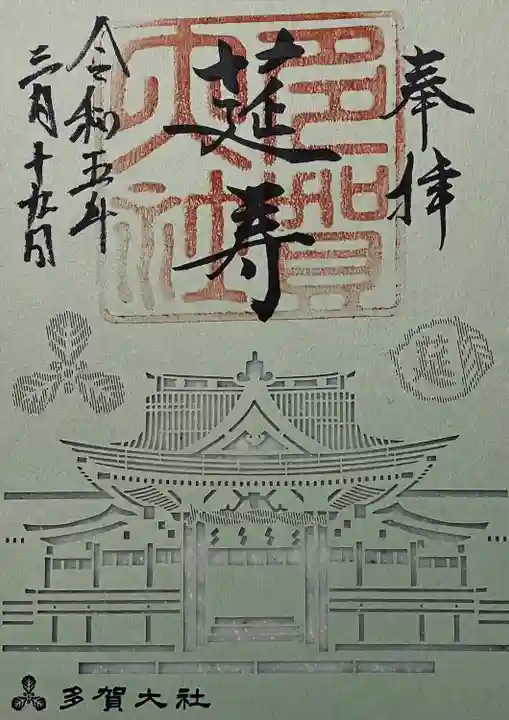 奉拝
莚寿
多賀
大社
令和五年
三月十九日
多賀大社